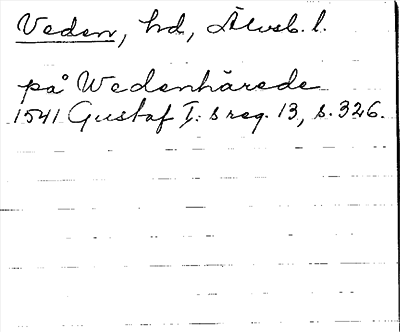 Veden, hd, Älvsb. l.
på Wedenhärede
1541 Gustaf I:s reg. 13, s. 326.